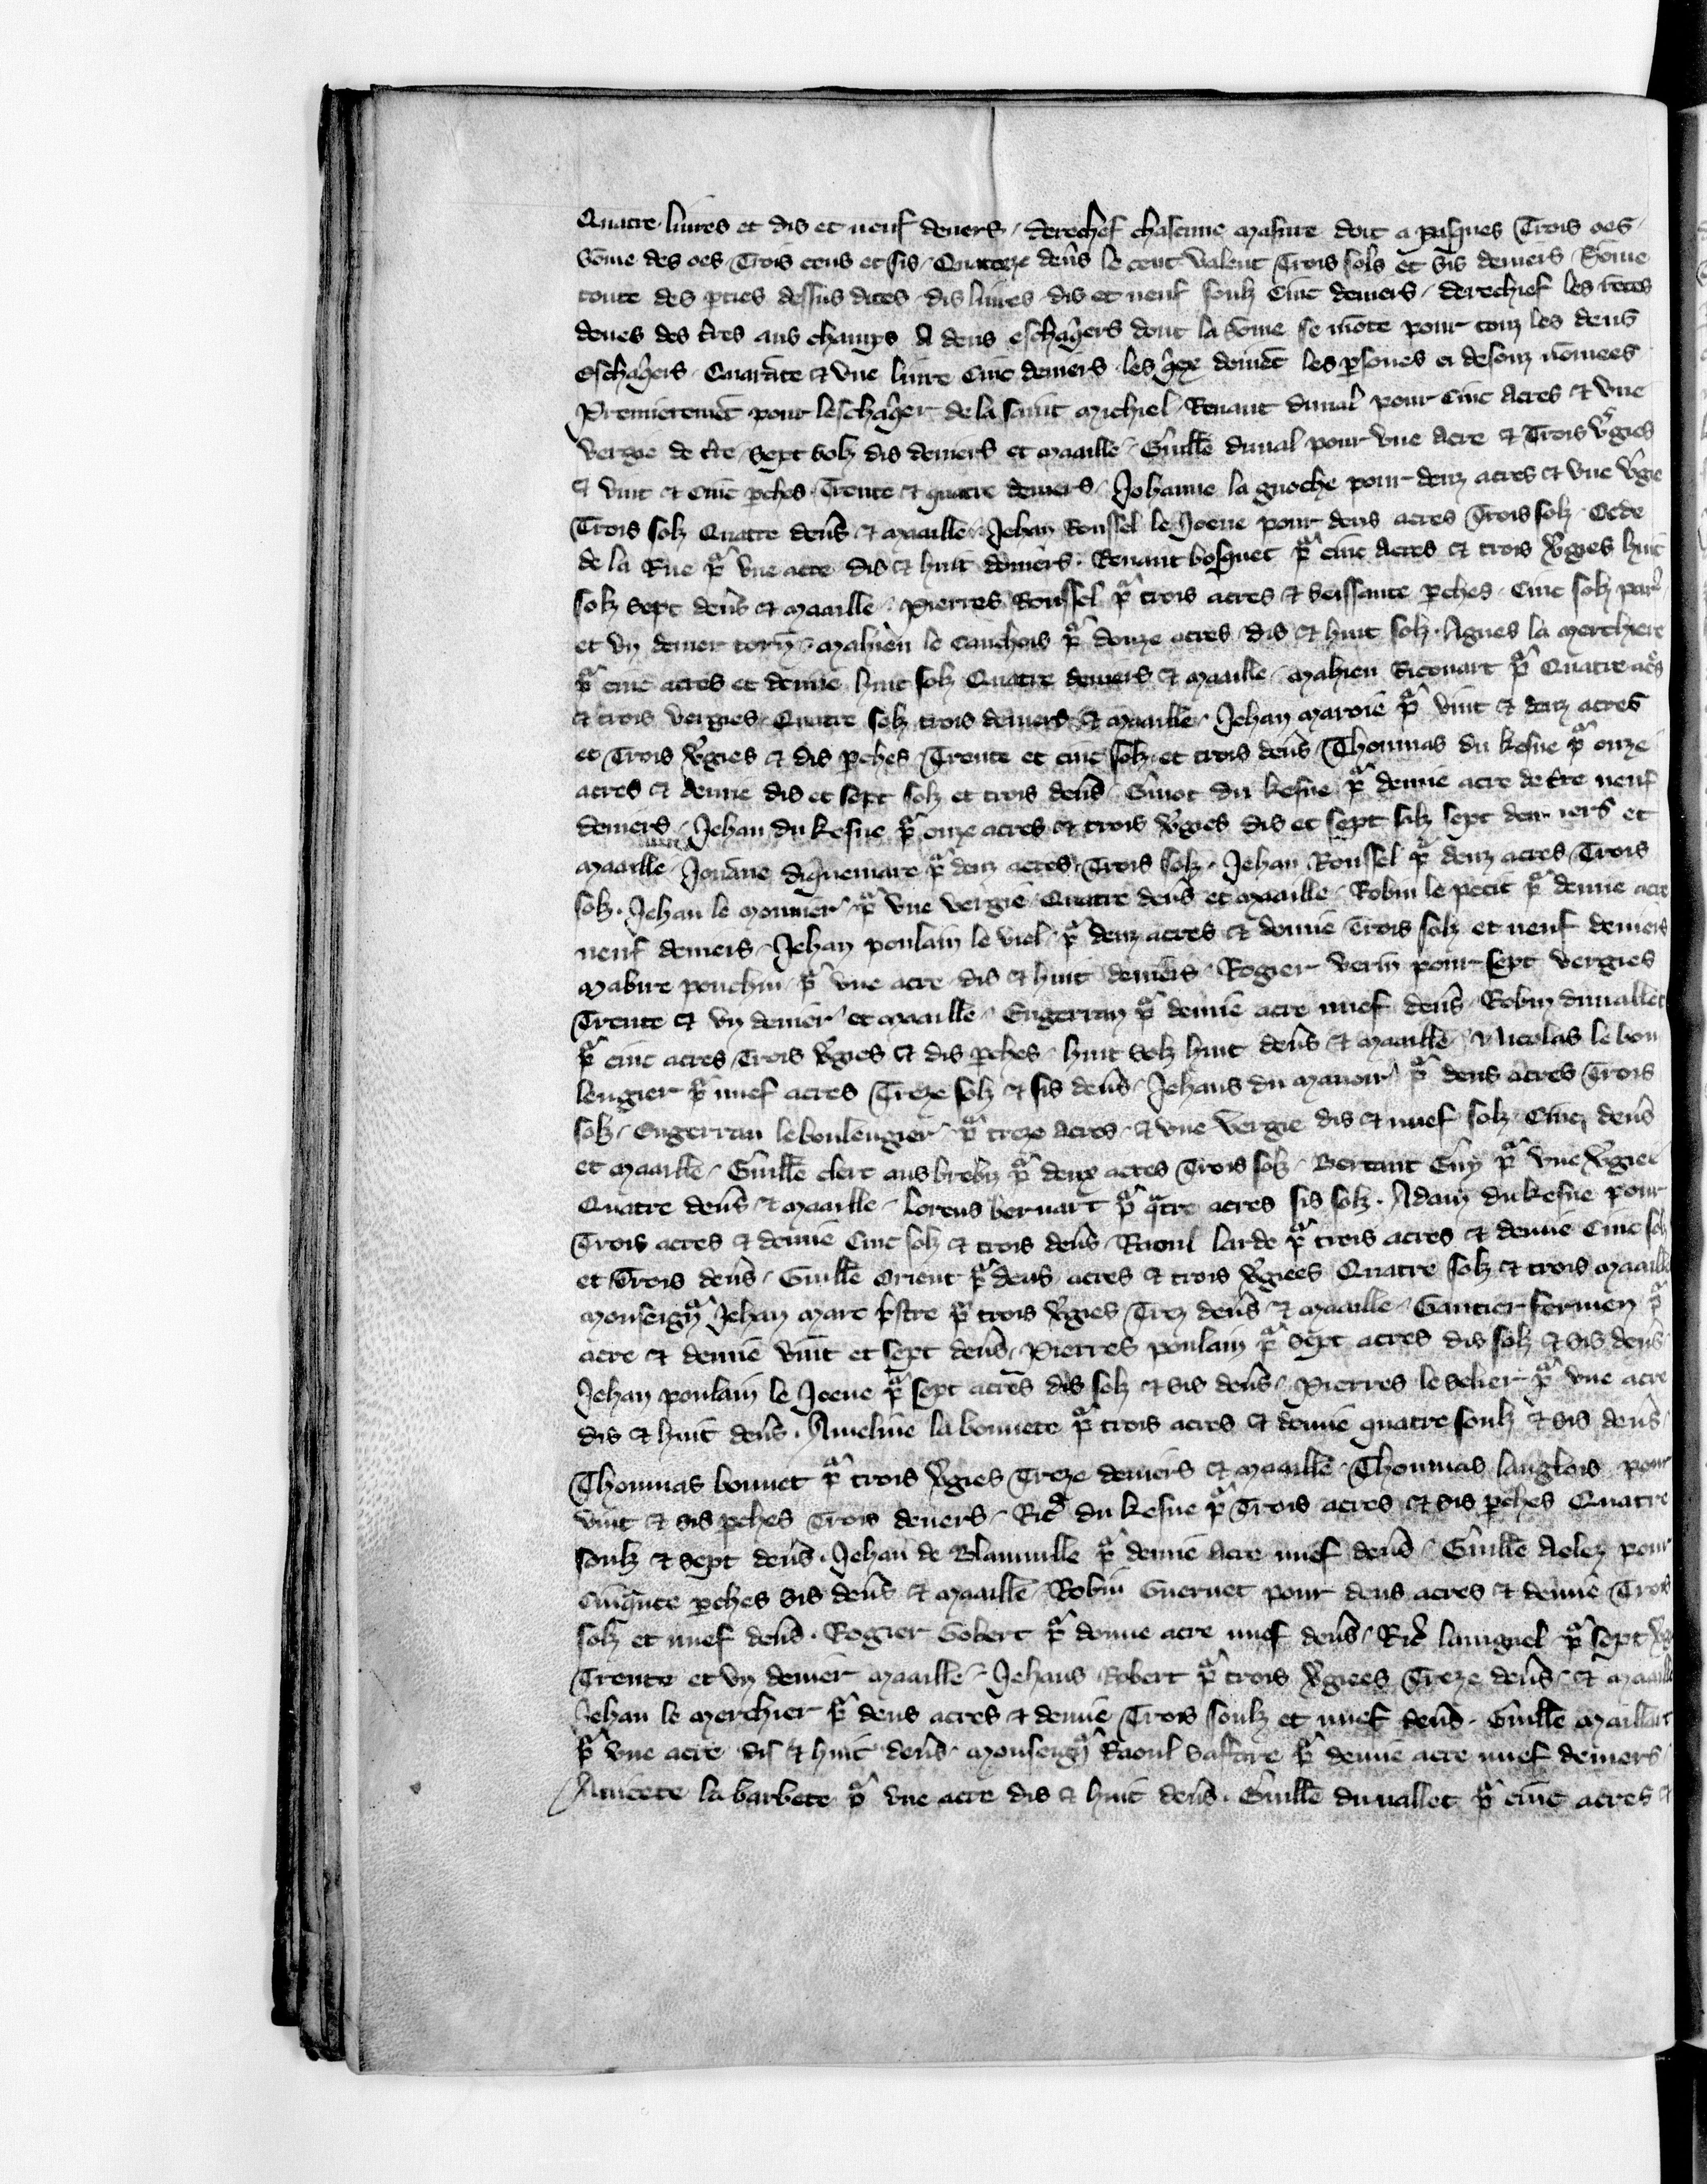 Quatre liures et dis et neuf deners / derechef chascune masure doit a pasques Trois oes /
Sōme des oes / Trois cens et sis / Quatorze den̄s le cent valent Trois sols et sis deniers / Sōme
toute des p̄ties dessus dites / dis liures dis et neuf soulz Cinc deniers / derechief les rētes
deues des t̄res aus champs A deus eschāgers dont la Sōme se mōte pour touz les deus
eschāgers / Quarāte et vne liure Cinc deniers les q̄ex doiuēt les p̄sones ci desouz nōmees
Premieremēt pour leschāger de la saint michiel / Renaut duual pour Cinc Acres et vne
vergie de t̄re / Sept solz dis deniers et maaille / Guill̄e duual pour vne Acre et Trois v̄gies
et vint et Cinc p̄ches Trente et quatre deniers / Johanne la guoche pour deuz acres et vne v̄gie
Trois solz Quatre den̄s et maaille / Jehan Roussel le Joene pour deus acres Trois solz Oede
de la Rue p̄ vne acre dis et huit deniers . Renaut bosquet p̄ cinc Acres et trois v̄gies huit
solz sept den̄s et maaille / Pierres Roussel p̄ trois acres et seissante p̄ches / Cinc solz par̄
et vn denier torn̄ / Mahieu le cauchois p̄ douze acres dis et huit solz . Agnes la merchiere
p̄ cinc acres et demie huit solz Quatre deniers et maaille / Mahieu Ricouart p̄ Quatre acrs
et trois vergies Quatre solz trois deniers et maaille / Jehan maroie p̄ vint et deuz acres
et Trois v̄gies et dis p̄ches Trente et cinc solz et trois den̄s / Thommas du kesne p̄ onze
acres et demie dis et sept solz et trois den̄s / Guiot du kesne p̄ demie acre de t̄re neuf
deniers / Jehan du kesne p̄ onze acres et trois v̄gies dis et sept solz sept deniers et
maaille / Jouāne diquemare p̄ deuz acres Trois solz . Jehan Roussel p̄ deuz acres Trois
solz . Jehan le monnier p̄ vne vergie Quatre den̄s et maaille / Robin le petit p̄ demie acre
neuf deniers / Jehan poulain le viel p̄ deuz acres et demie Trois solz et neuf deniers
mabire pouchin p̄ vne acre dis et huit deniers / Rogier verin pour sept vergies
Trente et vn denier et maaille / Engerran p̄ demie acre nuef den̄s / Robin duuallet
p̄ cinc acres Trois v̄gies et dis p̄ches / huit solz huit den̄s et maaille / Nicolas le bou
lengier p̄ nuef acres Treze solz et sis den̄s / Jehans du manoir p̄ deus acres Trois
solz / Engerran le boulengier p̄ treze acres et vne vergie dis et nuef solz Cinq den̄s
et maaille / Guill̄e clert aus brebiz p̄ deux acres Trois solz / Bertaut Guy p̄ vne v̄giee
Quatre den̄s et maaille / Lorens bernart p̄ q̄tre acres sis solz . Adam du kesne pour
Trois acres et demie Cinc solz et trois den̄s / Raoul larde p̄ trois acres et demie Cinc solz
et Trois den̄s / Guill̄e Orient p̄ deus acres et trois v̄giees Quatre solz et trois maaille
monseign̄ Jehan mare p̄stre p̄ trois v̄gies Trez den̄s et maaille / Gautier fermen p̄
acre et demie vint et sept den̄s / Pierres poulain p̄ sept acres dis solz et sis den̄s
Jehan poulain le Joene p̄ sept acres dis solz et sis den̄s / Pierres le selier p̄ vne acre
dis et huit den̄s . Ameline la bonnete p̄ trois acres et demie quatre soulz et sis den̄s /
Thommas bonnet p̄ trois v̄gies Treze deniers et maaille / Thommas langlois pour
vint et sis p̄ches Trois deners / Ric̄ du kesne p̄ Trois acres et sis p̄ches Quatre
soulz et sept den̄s . Jehan de Blainuille p̄ demie Acre nuef den̄s / Guill̄e Aelez pour
cinq̄nte p̄ches sis den̄s et maaille / Robin Guernet pour deus acres et demie Trois
solz et nuef den̄s . Rogier Gobert p̄ demie acre nuef den̄s / Ric̄ languel p̄ sept v̄g
Trente et vn denier maaille / Jehans Robert p̄ trois v̄giees Treze den̄s et maaille
Jehan le merchier p̄ deus acres et demie Trois soulz et nuef den̄s . Guill̄e maillart
p̄ vne acre dis et huit den̄s / monseign̄ Raoul saffare p̄ demie acre nuef deniers /
Amicete la barbete p̄ vne acre dis et huit den̄s . Guill̄e du uallet p̄ cinc acres et